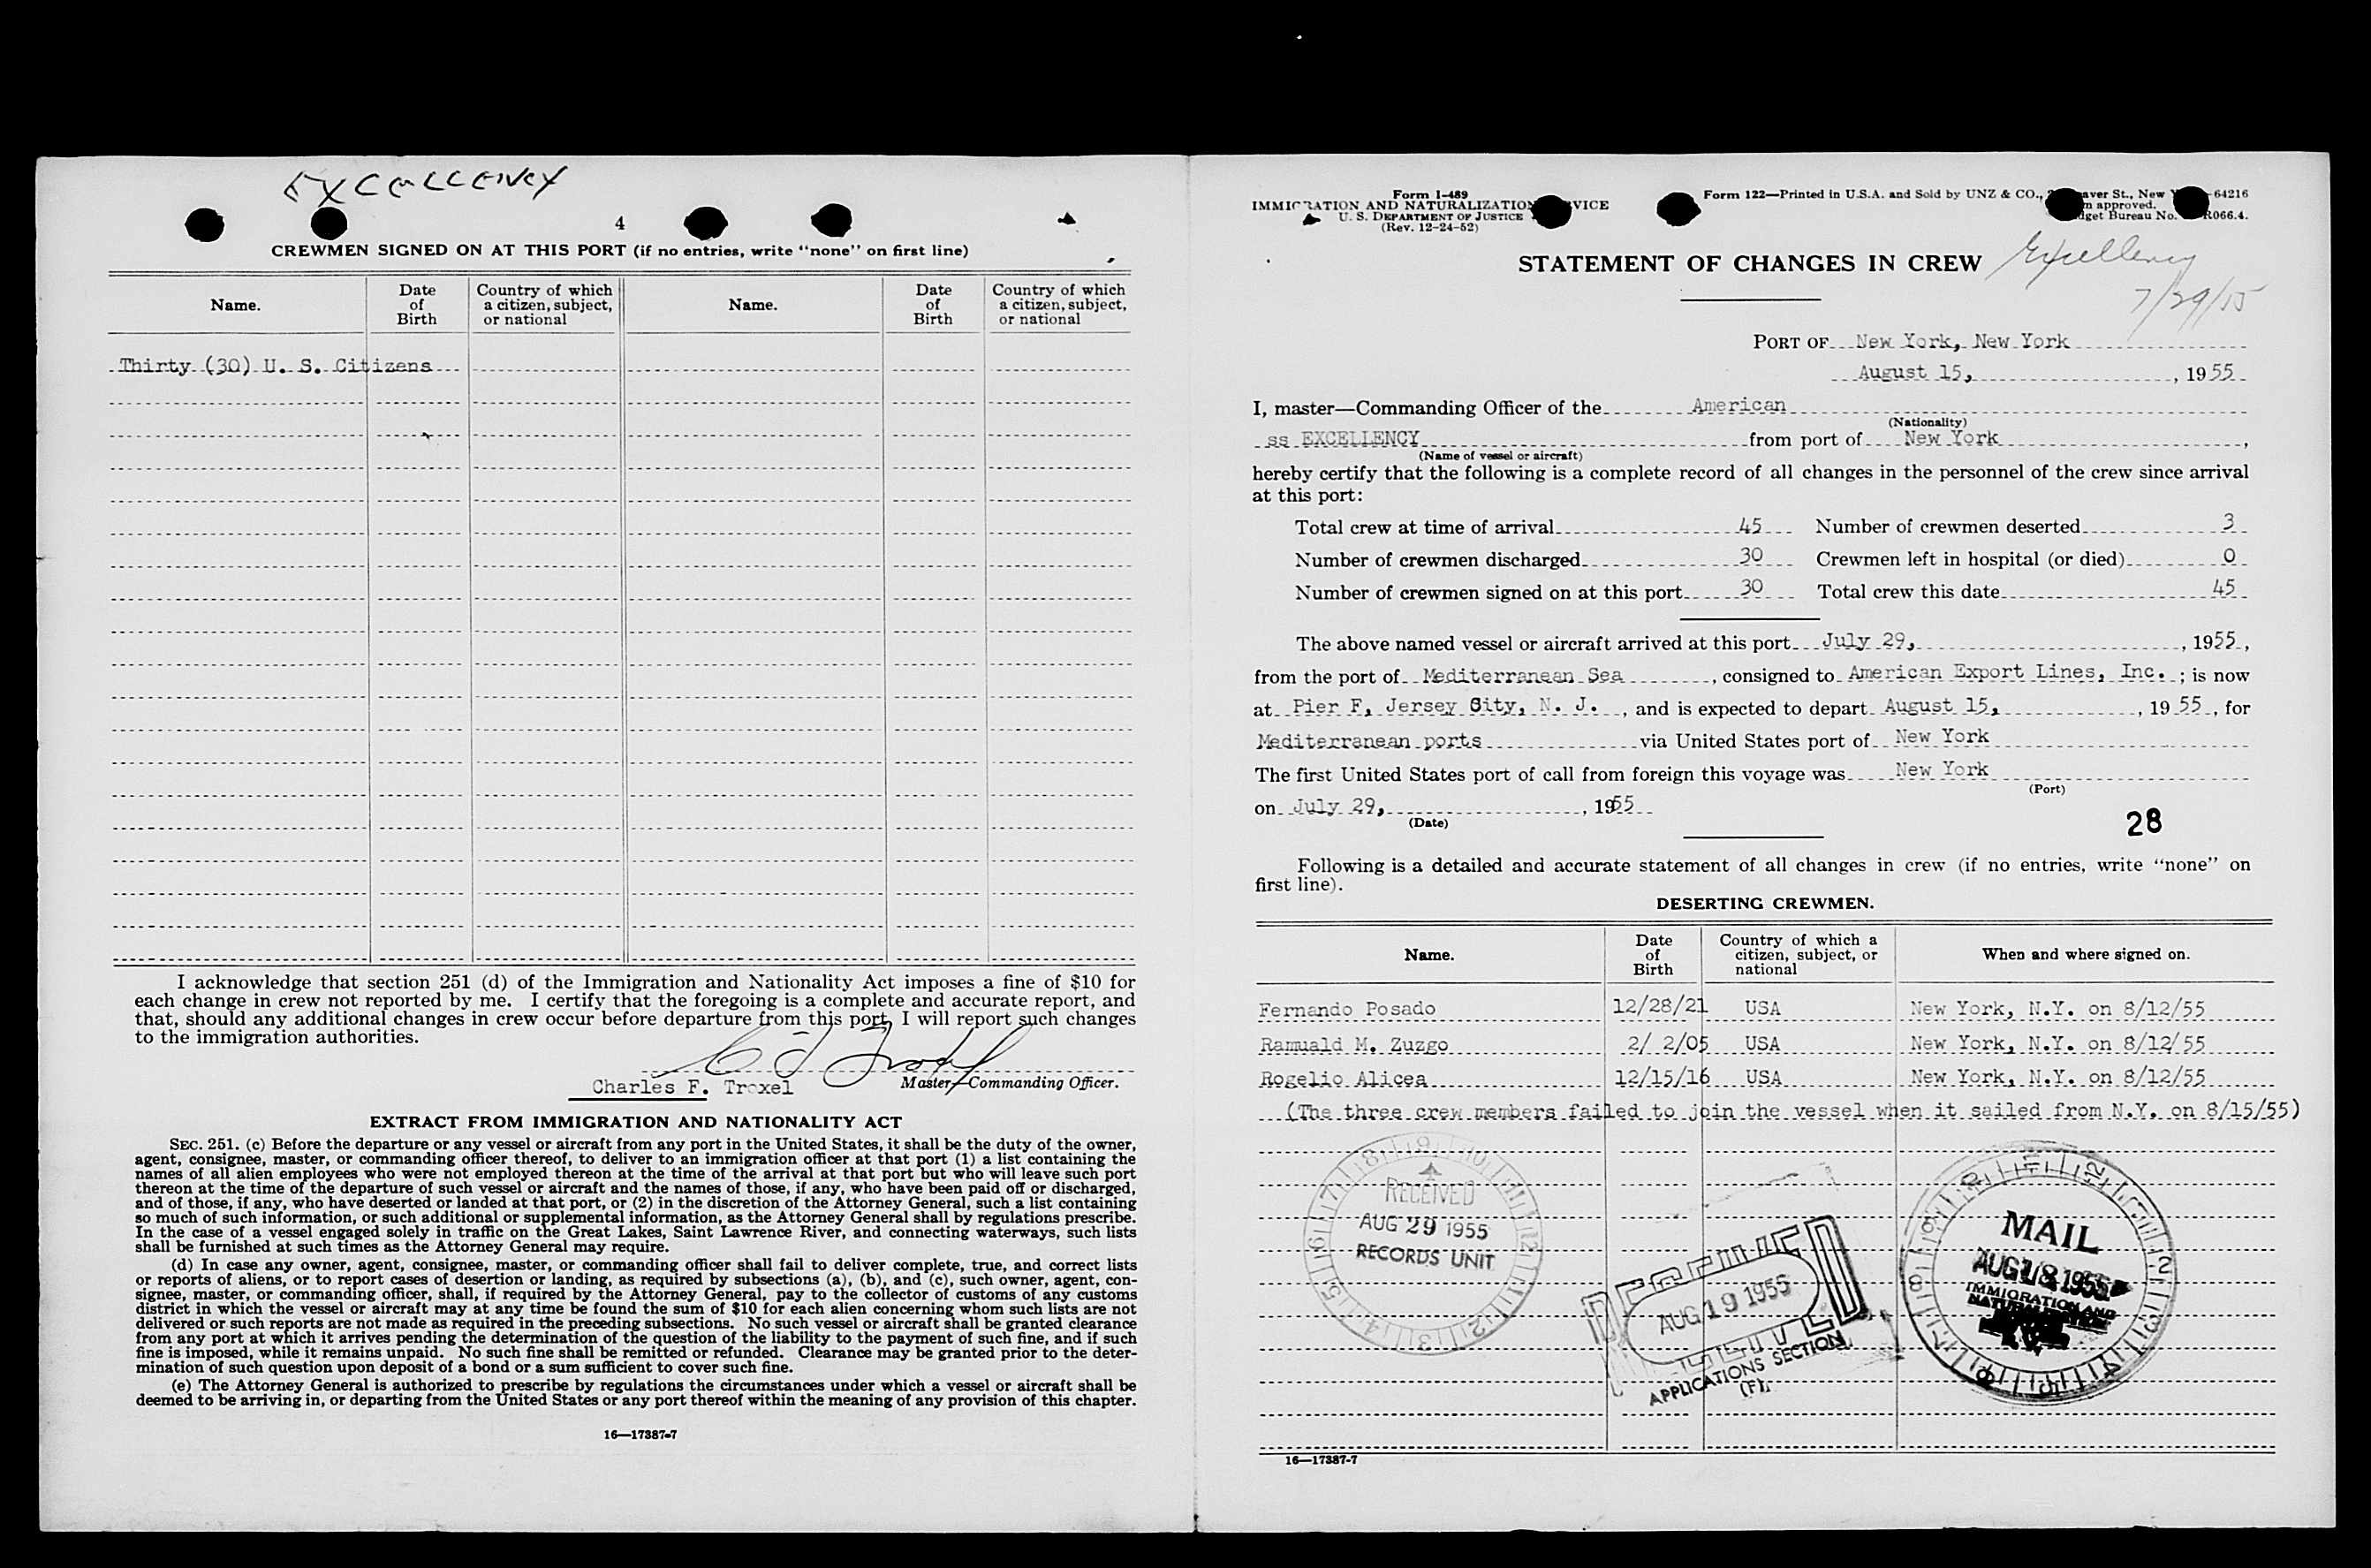 EXCELLENCY
4
CREWMEN SIGNED ON AT THIS PORT (if no entries, write "none" on first line)
Name. Date of Birth Country of which a citizen, subject, or national Name. Date of Birth Country of which a citizen, subject, or national
Thirty (30) U. S. Citizens
I acknowledge that section 251 (d) of the Immigration and Nationality Act imposes a fine of $10 for
each change in crew not reported by me. I certify that the foregoing is a complete and accurate report, and
that, should any additional changes in crew occur before departure from this port, I will report such changes
to the immigration authorities.
Charles F. Troxel Master—Commanding Officer.
EXTRACT FROM IMMIGRATION AND NATIONALITY ACT
SEC. 251. (c) Before the departure or any vessel or aircraft from any port in the United States, it shall be the duty of the owner,
agent, consignee, master, or commanding officer thereof, to deliver to an immigration officer at that port (1) a list containing the
names of all alien employees who were not employed thereon at the time of the arrival at that port but who will leave such port
thereon at the time of the departure of such vessel or aircraft and the names of those, if any, who have been paid off or discharged,
and of those, if any, who have deserted or landed at that port, or (2) in the discretion of the Attorney General, such a list containing
so much of such information, or such additional or supplemental information, as the Attorney General shall by regulations prescribe.
In the case of a vessel engaged solely in traffic on the Great Lakes, Saint Lawrence River, and connecting waterways, such lists
shall be furnished at such times as the Attorney General may require.
(d) In case any owner, agent, consignee, master, or commanding officer shall fail to deliver complete, true, and correct lists
or reports of aliens, or to report cases of desertion or landing, as required by subsections (a), (b), and (c), such owner, agent, con-
signee, master, or commanding officer, shall, if required by the Attorney General, pay to the collector of customs of any customs
district in which the vessel or aircraft may at any time be found the sum of $10 for each alien concerning whom such lists are not
delivered or such reports are not made as required in the preceding subsections. No such vessel or aircraft shall be granted clearance
from any port at which it arrives pending the determination of the question of the liability to the payment of such fine, and if such
fine is imposed, while it remains unpaid. No such fine shall be remitted or refunded. Clearance may be granted prior to the deter-
mination of such question upon deposit of a bond or a sum sufficient to cover such fine.
(e) The Attorney General is authorized to prescribe by regulations the circumstances under which a vessel or aircraft shall be
deemed to be arriving in, or departing from the United States or any port thereof within the meaning of any provision of this chapter.
16—17387-7
Form I-489
IMMIGRATION AND NATURALIZATION SERVICE
U. S. DEPARTMENT OF JUSTICE
(Rev. 12-24-52)
Form 122—Printed in U.S.A. and Sold by UNZ & CO., St., New 64216
approved.
Bureau No. R066.4.
STATEMENT OF CHANGES IN CREW
Excellency
7/29/55
PORT OF New York, New York
August 15, , 1955
I, master—Commanding Officer of the American
(Nationality)
ss EXCELLENCY from port of New York ,
(Name of vessel or aircraft)
hereby certify that the following is a complete record of all changes in the personnel of the crew since arrival
at this port:
Total crew at time of arrival 45 Number of crewmen deserted 3
Number of crewmen discharged 30 Crewmen left in hospital (or died) 0
Number of crewmen signed on at this port 30 Total crew this date 45
The above named vessel or aircraft arrived at this port July 29, , 1955 ,
from the port of Mediterranean Sea , consigned to American Export Lines, Inc. ; is now
at Pier F, Jersey City, N. J. , and is expected to depart August 15, , 19 55 , for
Mediterranean ports via United States port of New York
The first United States port of call from foreign this voyage was New York
(Port)
on July 29, , 1955
(Date)
28
Following is a detailed and accurate statement of all changes in crew (if no entries, write "none" on
first line).
DESERTING CREWMEN.
Name. Date of Birth Country of which a citizen, subject, or national When and where signed on.
Fernando Posado 12/28/21 USA New York, N.Y. on 8/12/55
Ramuald M. Zuzgo 2/ 2/05 USA New York, N.Y. on 8/12/55
Rogelio Alicea 12/15/16 USA New York, N.Y. on 8/12/55
(The three crew members failed to join the vessel when it sailed from N.Y. on 8/15/55)
RECEIVED
AUG 29 1955
RECORDS UNIT
AUG 19 1955
APPLICATIONS SECTION
MAIL
AUG 18 1955
IMMIGRATION AND
16—17387-7